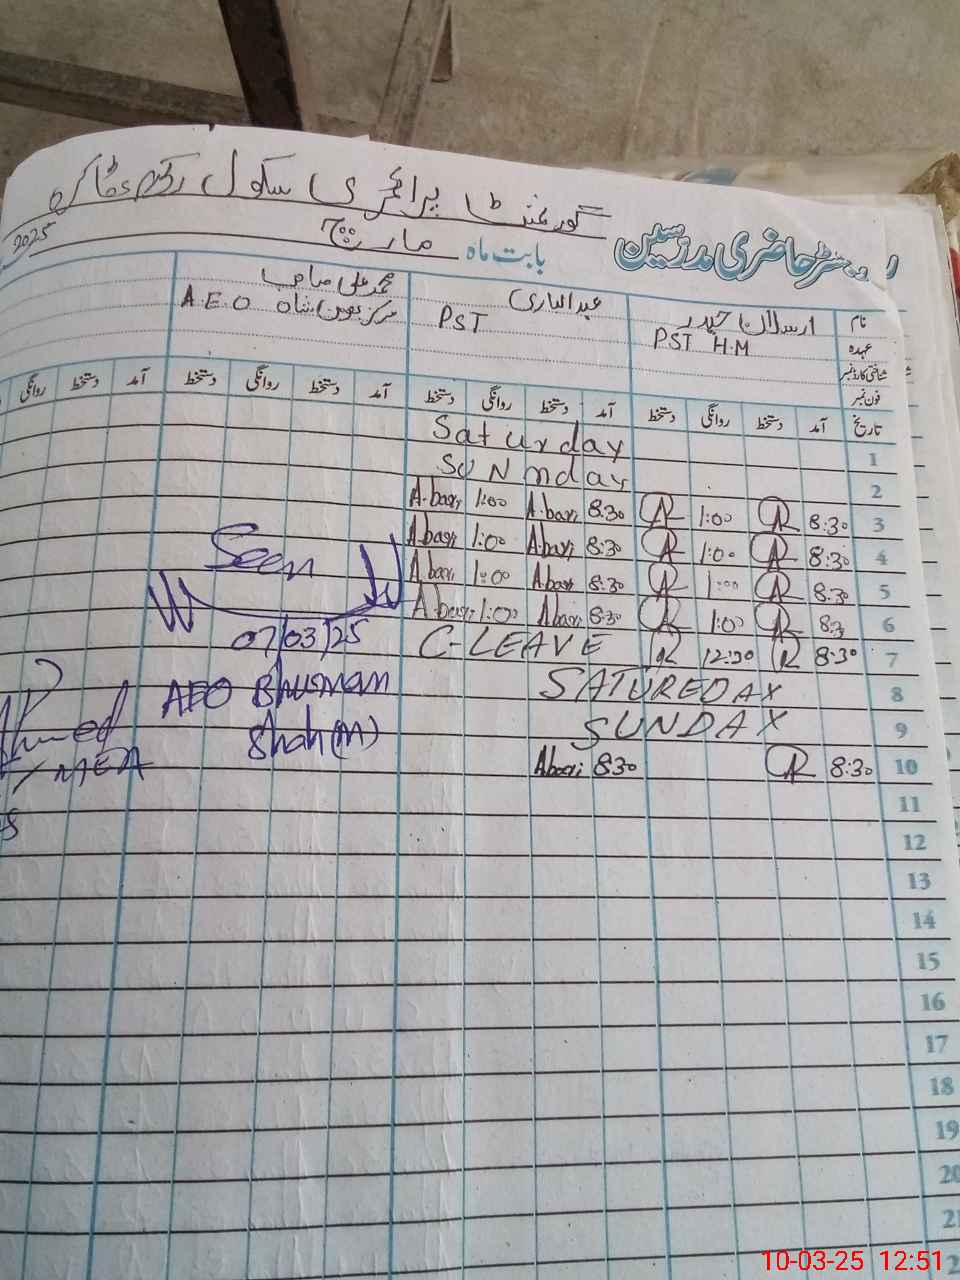 گورنمنٹ پرائمری سکول
رجسٹر حاضری مدرسین
بابت ماہ مارچ 2025
نام ارسلان حیدر عبدالباری محمد علی صاحب
عہدہ PST H.M PST A.E.O مرکز
شناختی کارڈ نمبر
فون نمبر
تاریخ آمد دستخط روانگی دستخط آمد دستخط روانگی دستخط آمد دستخط روانگی دستخط آمد دستخط روانگی
1 Saturday
2 SUNnday
3 8:30 1:00 8:30 A.bari 1:00 A.bari
4 8:30 1:00 8:30 Abari 1:00 Abari
5 8:30 1:00 8:30 Abari 1:00 Abari
6 8:3 1:00 8:30 Abari 1:00 A.bari
7 8:30 12:30 C-LEAVE
8 SATUREDAY
9 SUNDAY
10 8:30 8:30 Abari
11
12
13
14
15
16
17
18
19
20
21
Seen
07/03/25
AEO Bhuman
Shah (M)
Ahmed
MEA
10-03-25 12:51